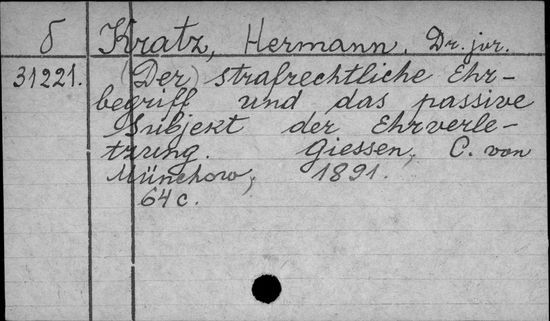 б Kratz, Hermann, Dr. jur.
31221. (Der) strafrechtliche Ehr-
begriff und das passive
Subjekt der Ehrverle-
tzung. Giessen, C. von
Münchow, 1891.
64 c.